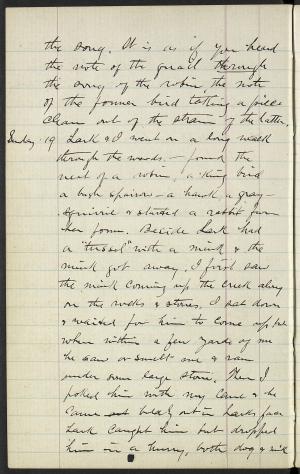 the song. It is as if you heard
the note of the quail through
the song of the robin, the note
of the former bird taking a piece
clean out of the strain of the latter.
Sunday. 19 Lark & I went on a long walk
through the woods, — found the
nest of a robin, a king bird
a bush sparrow — a hawk, a gray-
squirrel & started a rabbit from
her form. Beside Lark had
a "tussel" with a mink & the
mink got away. I first saw
the mink coming up the creek along
on the rocks & stones, I sat down
& waited for him to come up, but
when within a few yards of me
he saw or smelt me & ran
under some large stone. Then I
poked him with my cane & he
came out boldly in Larks face
Lark caught him but dropped
him in a hurry, both dog & mink